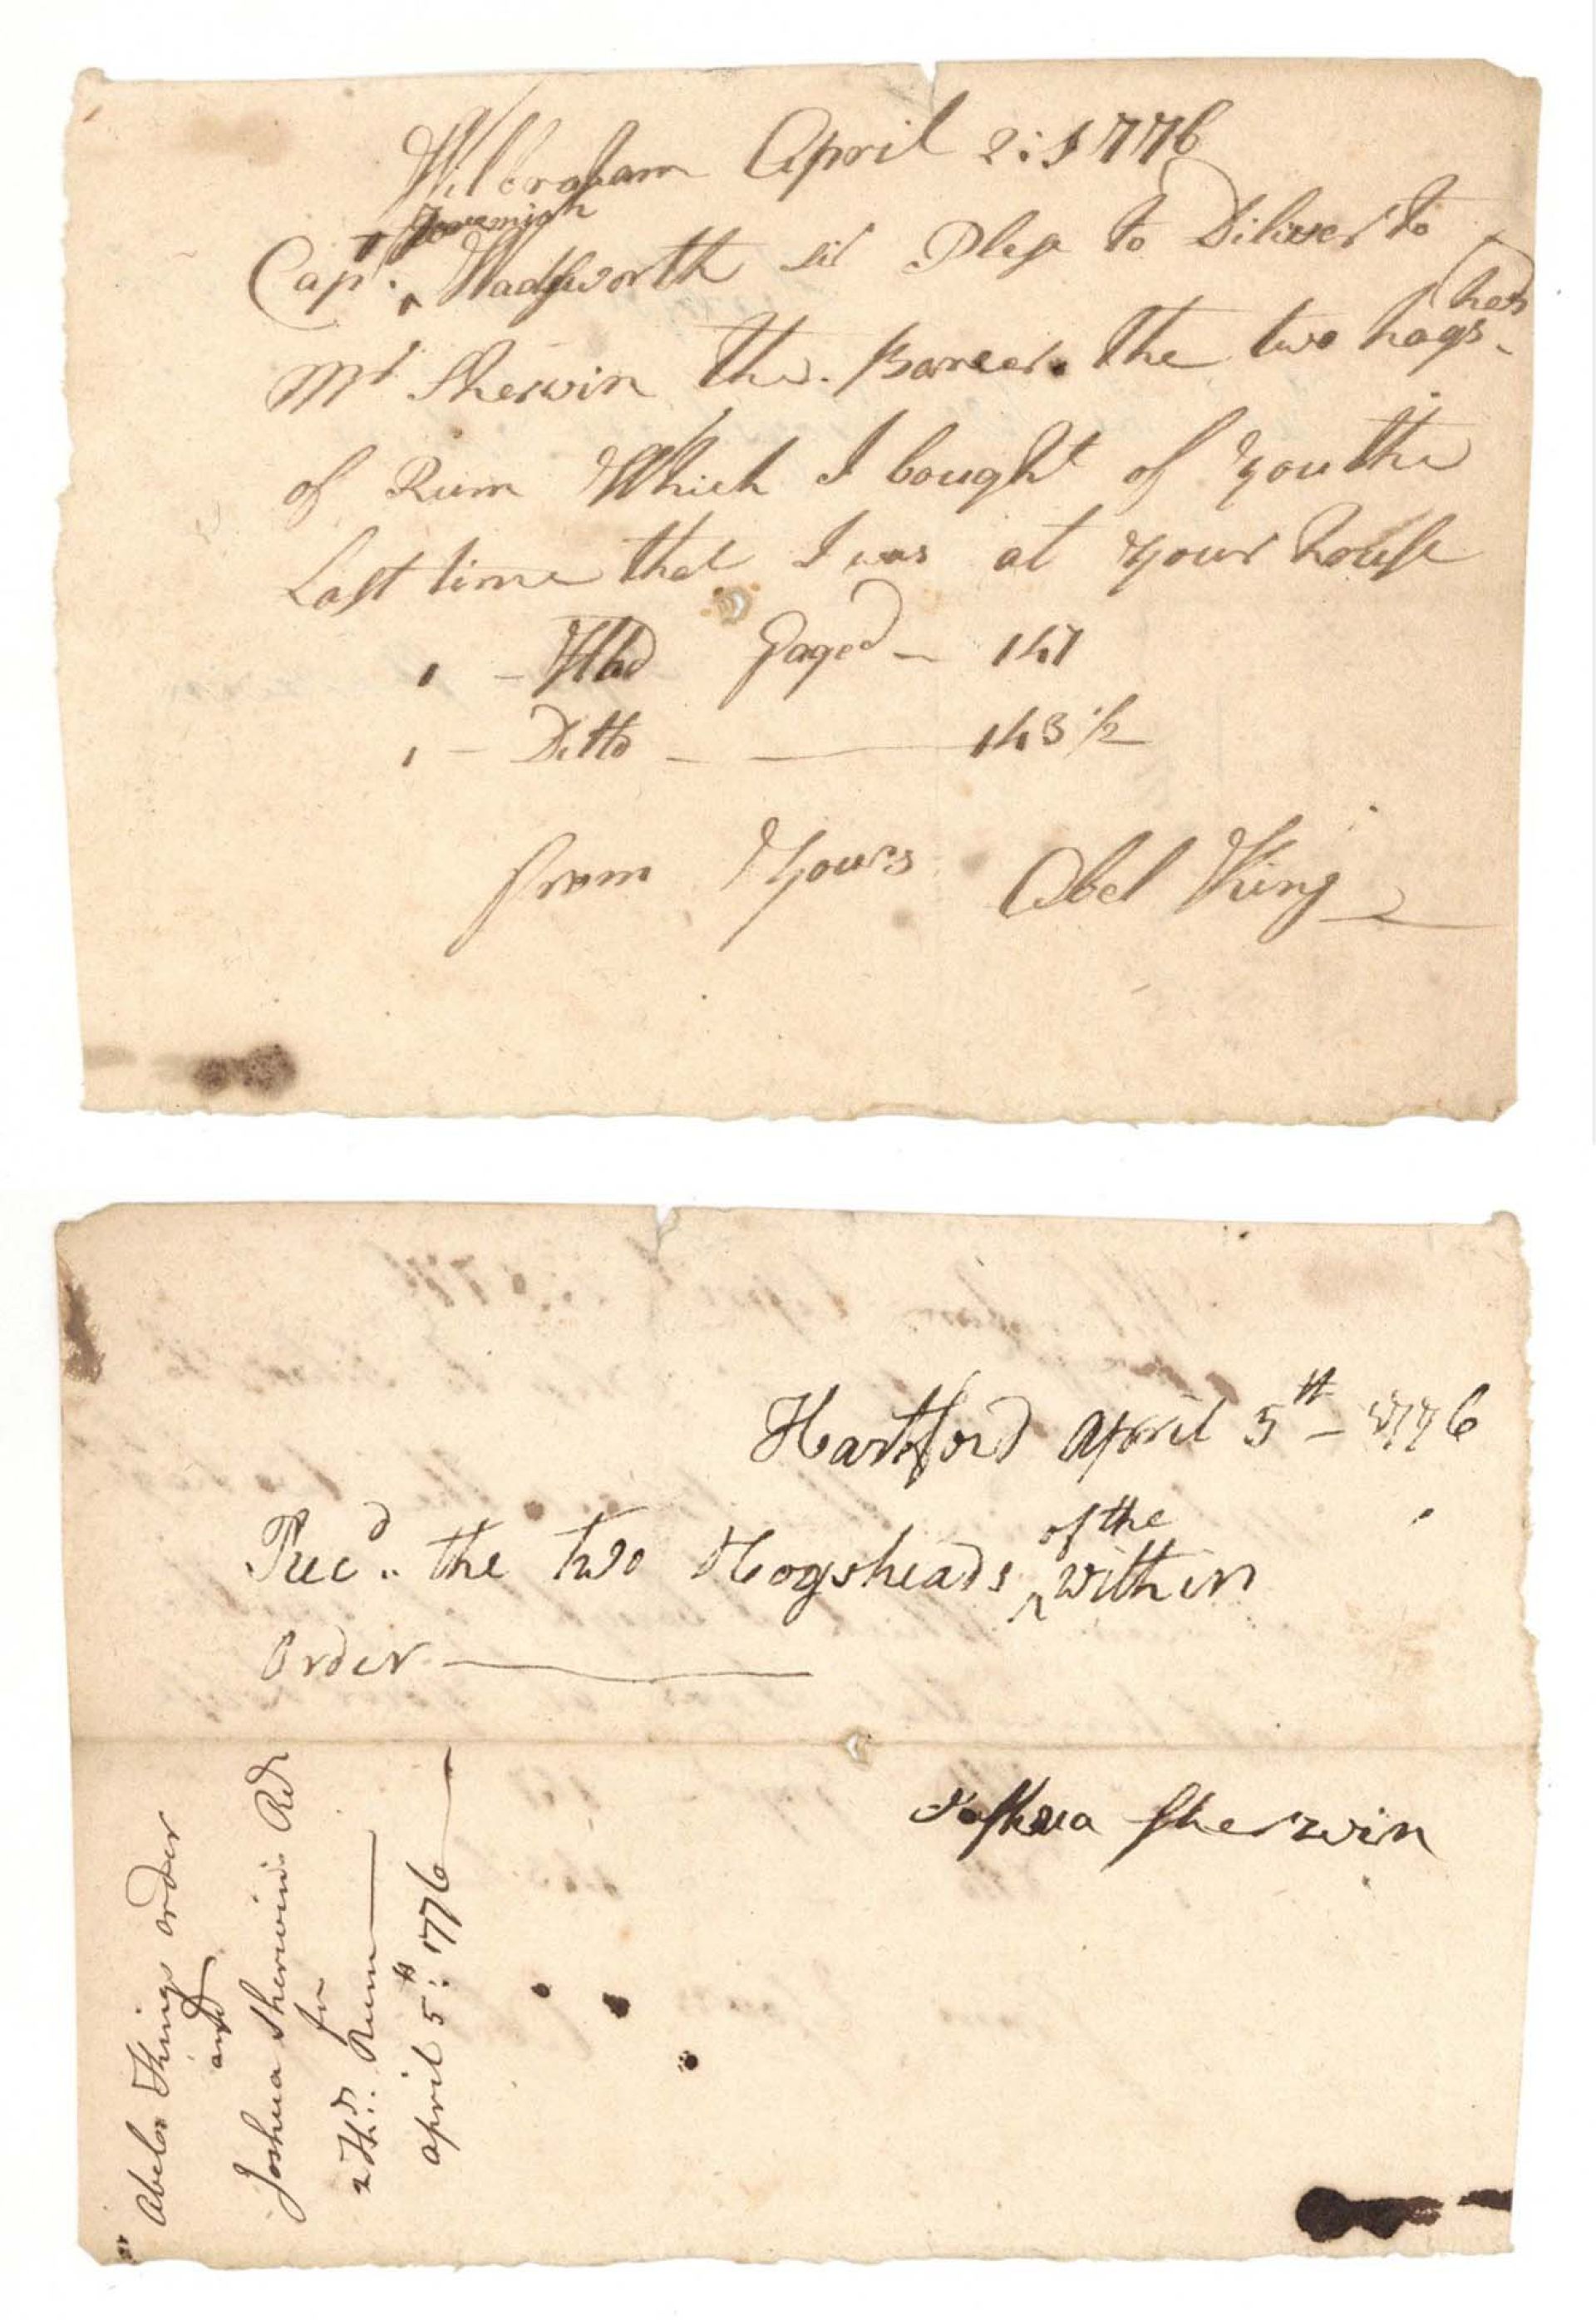 Wilbraham April 2: 1776
Jeremiah
Capt. ^ Wadsworth sir Plese to Diliver to
Mr Sherwin the. Barer. the two hogs-
heds
of Rum Which I bought of you the
Last time that I was at your house
1 - Hhd Gaged - 147
1 - Ditto - 143 1/2
from Yours Abel King
Hartford April 5th - 1776
of the
Recd.. the two Hogsheads ^ within
Order
Joshua Sherwin
Abel Kings order
and
Joshua Sherwins Rd
for
2 Hhds: Rum
April 5th: 1776